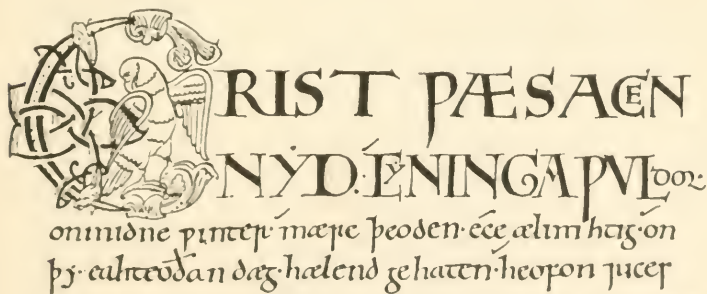 CRIST ǷÆS ACEN
NẎD· CẎNINGA ǷVLDOR·
onmidne ƿinter· mære þeoden· éce ælmihtig· ón
þẏ· eahteoðan dæg· hælend ge háten· heofon ricef